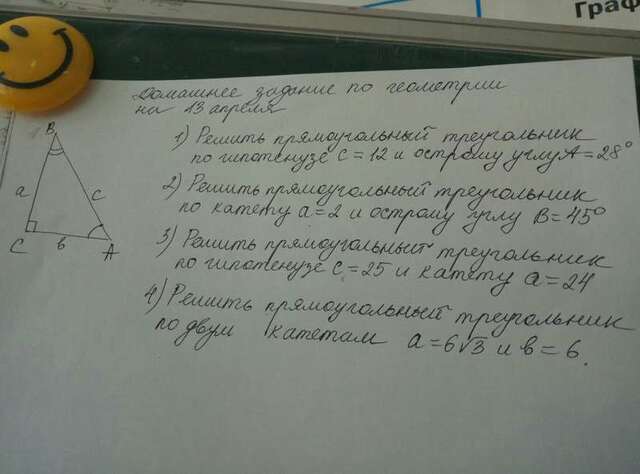 Граф
Домашнее задание по геометрии
на 13 апреля
1) Решить прямоугольный треугольник
по гипотенузе c = 12 и острому углу A = 28°
2) Решить прямоугольный треугольник
по катету a = 2 и острому углу B = 45°
3) Решить прямоугольный треугольник
по гипотенузе c = 25 и катету a = 24
4) Решить прямоугольный треугольник
по двум катетам a = 6√3 и в = 6.
B
a
c
C
в
A